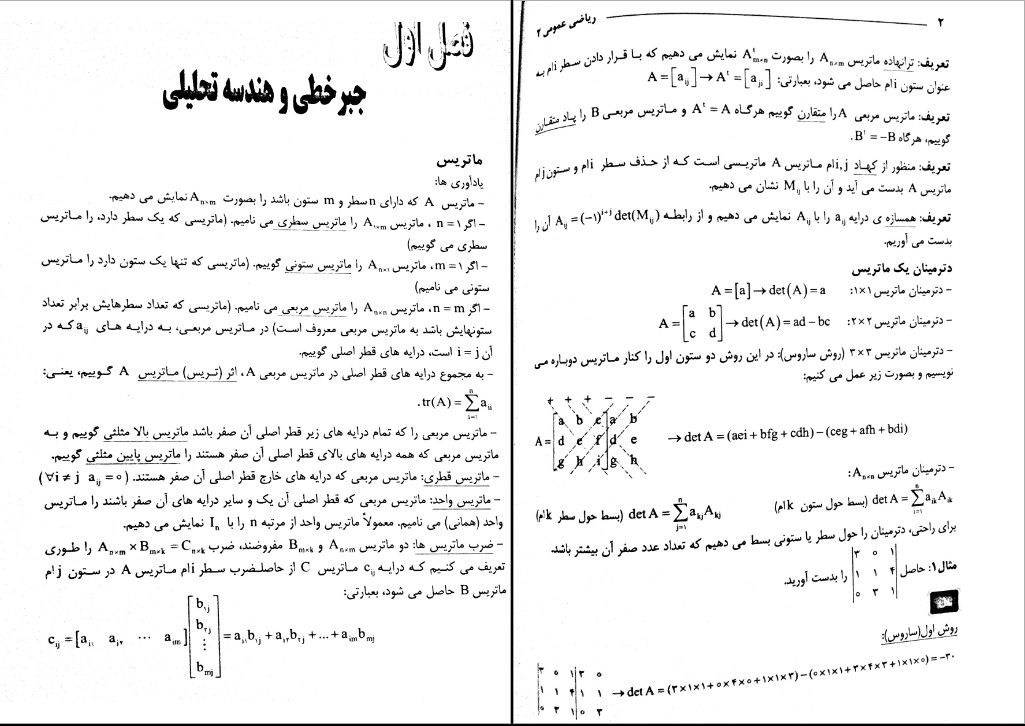 فصل اول
جبر خطی و هندسه تحلیلی
ماتریس
یادآوری ها:
– ماتریس A که دارای n سطر و m ستون باشد را بصورت Aₙₓₘ نمایش می دهیم.
– اگر n = ۱ ، ماتریس A₁ₓₘ را ماتریس سطری می نامیم. (ماتریسی که یک سطر دارد، را ماتریس
سطری می گوییم)
– اگر m = ۱، ماتریس Aₙₓ₁ را ماتریس ستونی گوییم. (ماتریسی که تنها یک ستون دارد را ماتریس
ستونی می نامیم)
– اگر n = m، ماتریس Aₙₓₙ را ماتریس مربعی می نامیم. (ماتریسی که تعداد سطرهایش برابر تعداد
ستونهایش باشد به ماتریس مربعی معروف است) در ماتریس مربعی، به درایه های aᵢⱼ که در
آن i = j است، درایه های قطر اصلی گوییم.
– به مجموع درایه های قطر اصلی در ماتریس مربعی A، اثر (تریس) ماتریس A گوییم، یعنی:
.tr(A) = ∑ⁿᵢ₌₁ aᵢᵢ
– ماتریس مربعی را که تمام درایه های زیر قطر اصلی آن صفر باشد ماتریس بالا مثلثی گوییم و به
ماتریس مربعی که همه درایه های بالای قطر اصلی آن صفر هستند را ماتریس پایین مثلثی گوییم.
– ماتریس قطری: ماتریس مربعی که درایه های خارج قطر اصلی آن صفر هستند. (∀i ≠ j aᵢⱼ = ۰)
– ماتریس واحد: ماتریس مربعی که قطر اصلی آن یک و سایر درایه های آن صفر باشند را ماتریس
واحد (همانی) می نامیم. معمولاً ماتریس واحد از مرتبه n را با Iₙ نمایش می دهیم.
– ضرب ماتریس ها: دو ماتریس Aₙₓₘ و Bₘₓₖ مفروضند، ضرب Aₙₓₘ × Bₘₓₖ = Cₙₓₖ را طوری
تعریف می کنیم که درایه cᵢⱼ ماتریس C از حاصلضرب سطر i ام ماتریس A در ستون j ام
ماتریس B حاصل می شود، بعبارتی:
cᵢⱼ = [aᵢ₁ aᵢ₂ ⋯ aᵢₘ] [b₁ⱼ b₂ⱼ ⋮ bₘⱼ] = aᵢ₁b₁ⱼ + aᵢ₂b₂ⱼ + ... + aᵢₘbₘⱼ
۲ ریاضی عمومی ۲
تعریف: ترانهاده ماتریس Aₙₓₘ را بصورت Aᵗₘₓₙ نمایش می دهیم که با قرار دادن سطر i ام به
عنوان ستون i ام حاصل می شود، بعبارتی: A = [aᵢⱼ] → Aᵗ = [aⱼᵢ]
تعریف: ماتریس مربعی A را متقارن گوییم هرگاه Aᵗ = A و ماتریس مربعی B را پاد متقارن
گوییم، هرگاه Bᵗ = −B.
تعریف: منظور از کهاد i,j ام ماتریس A ماتریسی است که از حذف سطر i ام و ستون j ام
ماتریس A بدست می آید و آن را با Mᵢⱼ نشان می دهیم.
تعریف: همسازه ی درایه aᵢⱼ را با Aᵢⱼ نمایش می دهیم و از رابطه Aᵢⱼ = (−۱)ⁱ⁺ʲ det(Mᵢⱼ) آن را
بدست می آوریم.
دترمینان یک ماتریس
– دترمینان ماتریس ۱×۱: A = [a] → det(A) = a
– دترمینان ماتریس ۲×۲: A = [a b; c d] → det(A) = ad − bc
– دترمینان ماتریس ۳×۳ (روش ساروس): در این روش دو ستون اول را کنار ماتریس دوباره می
نویسیم و بصورت زیر عمل می کنیم:
+ + + − − −
a b c a b
A = d e f d e → det A = (aei + bfg + cdh) − (ceg + afh + bdi)
g h i g h
– دترمینان ماتریس Aₙₓₙ:
det A = ∑ⁿᵢ₌₁ aᵢₖAᵢₖ (بسط حول ستون k ام) det A = ∑ⁿⱼ₌₁ aₖⱼAₖⱼ (بسط حول سطر k ام)
برای راحتی، دترمینان را حول سطر یا ستونی بسط می دهیم که تعداد عدد صفر آن بیشتر باشد.
مثال ۱: حاصل |۳ ۰ ۱; ۱ ۱ ۴; ۰ ۳ ۱| را بدست آورید.
حل
روش اول(ساروس):
۳ ۰ ۱ ۳ ۰
۱ ۱ ۴ ۱ ۱ → det A = (۳×۱×۱ + ۰×۴×۰ + ۱×۱×۳) − (۰×۱×۱ + ۳×۴×۳ + ۱×۱×۰) = −۳۰
۰ ۳ ۱ ۰ ۳